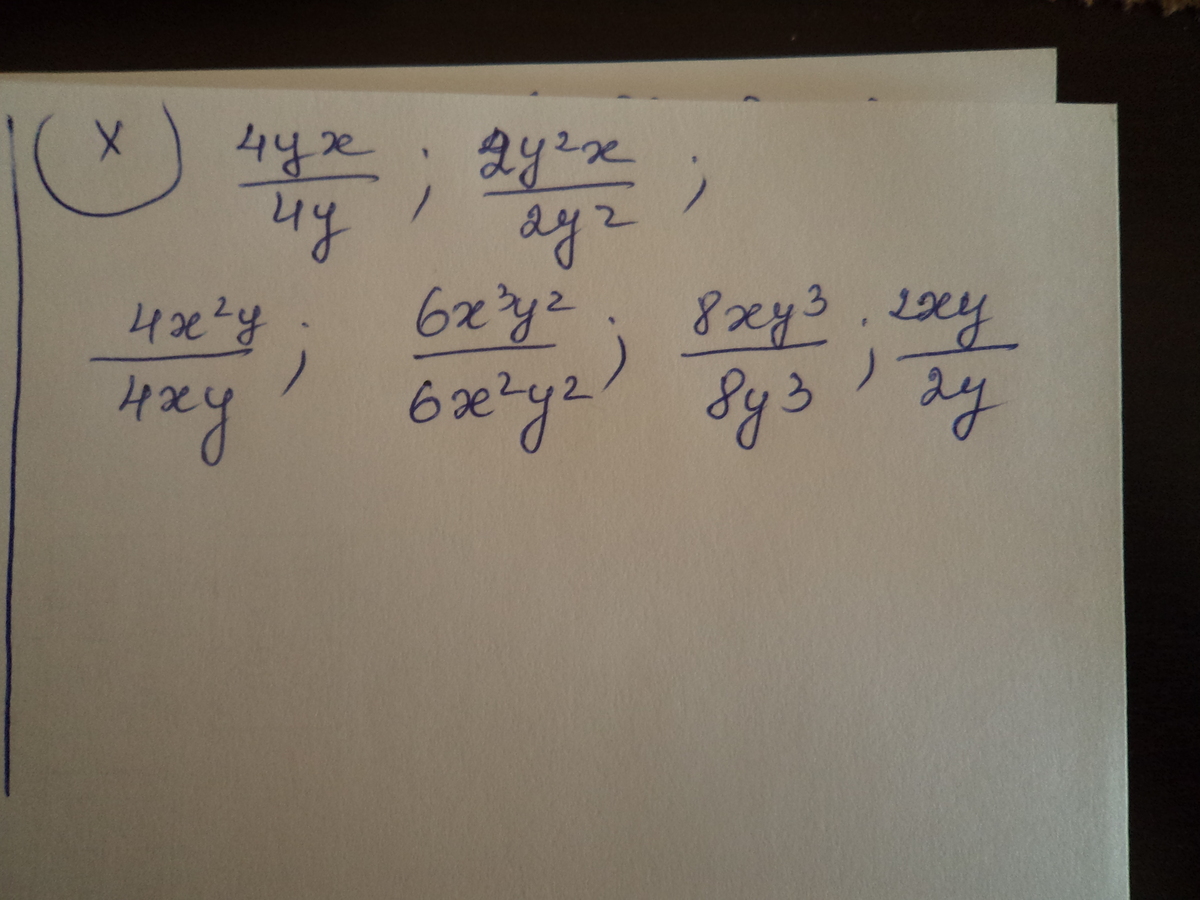 x  4yx/4y ; 2y²x/2y² ;
4x²y/4xy ; 6x³y²/6x²y² ; 8xy³/8y3 ; 2xy/2y